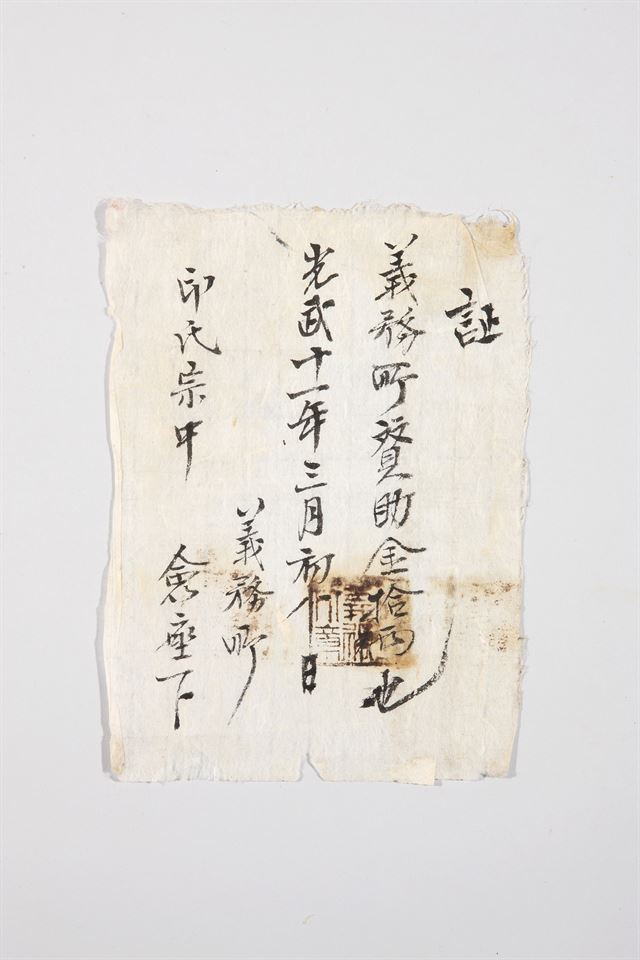 証
義務所資助金拾両也
光武十一年三月初八日
義務所
印氏宗中 僉座下